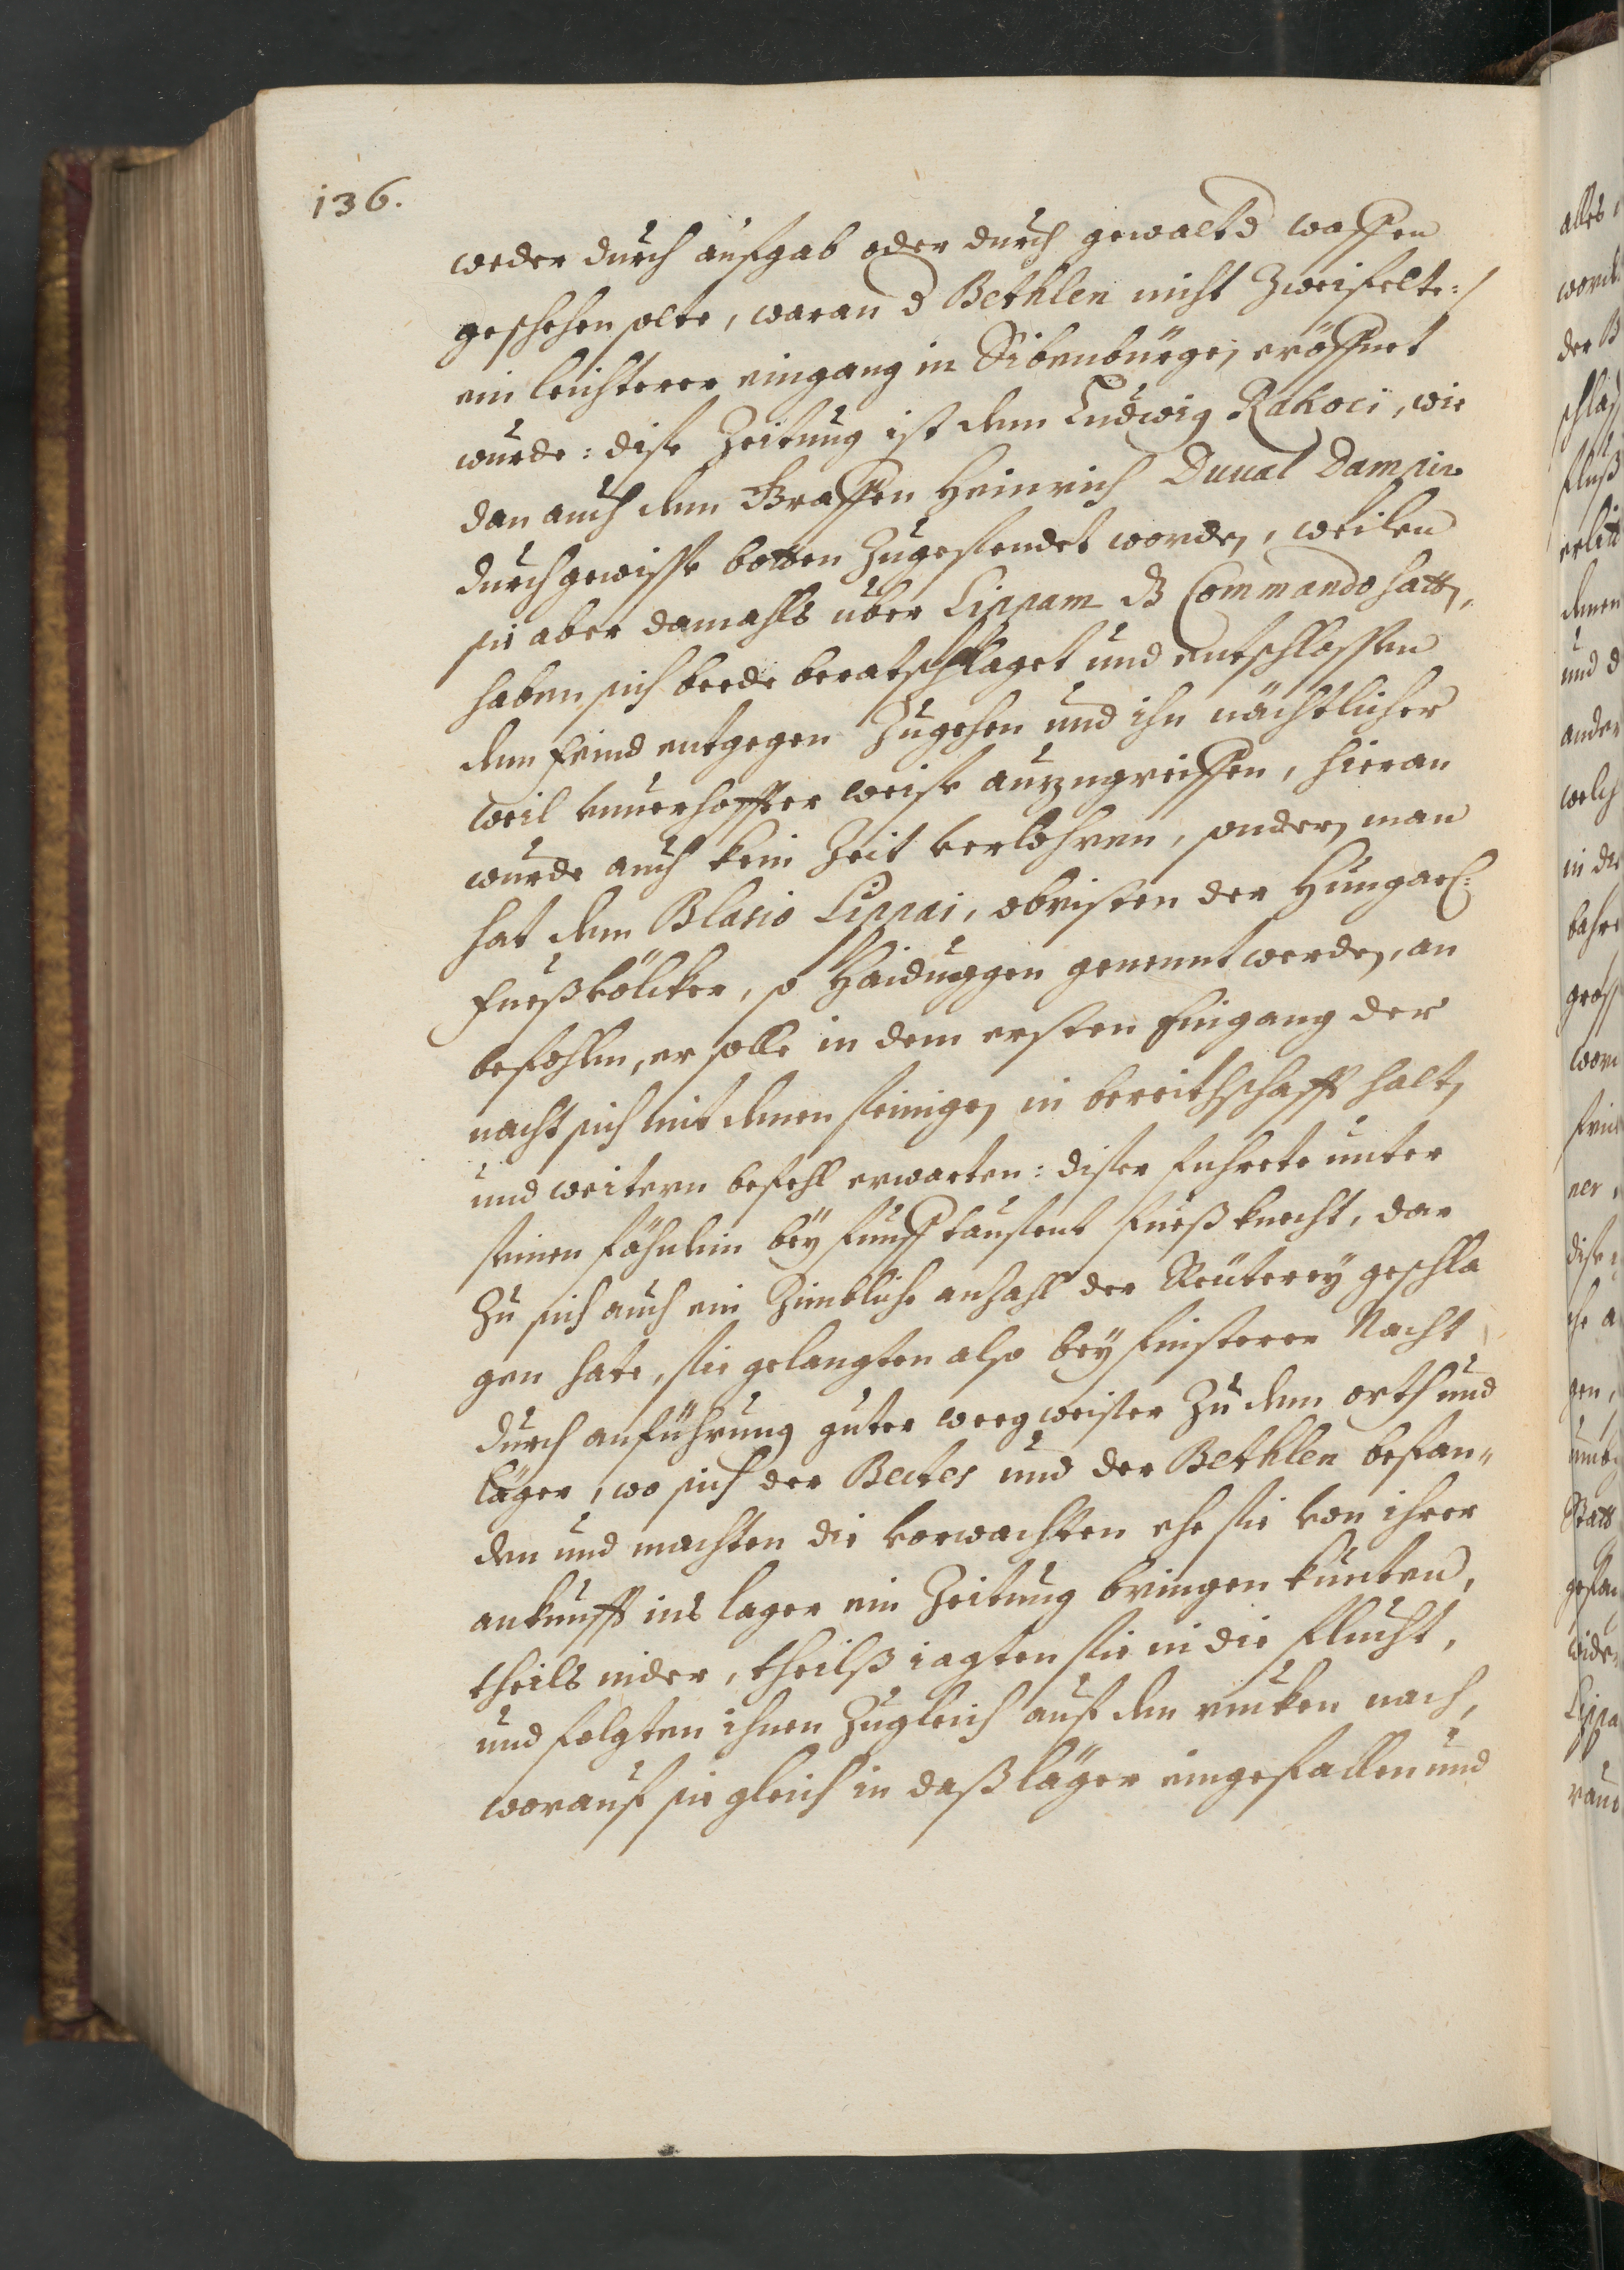 136.
weder durch aufgab oder durch gewalt d waffen
geschehen solte, waran d Bethlen nicht zweifelte:/
ein leichterer eingang in Sibenbürgen eröffnet
wurde: dise Zeitung ist dem Ludwig Rakoci, wie
dan auch dem Graffen Heinrich Duual Dampir
durch gewisse botten zugesendet worden, weilen
sie aber damahls über Lippam dz Commando hatten,
haben sich beede berathschlaget und entschlossen
dem feind entgegen zugehen und ihn nächtlicher
weil unuerhoffter weise anzugreiffen, hieran
wurde auch kein Zeit verlohren, sondern man
hat dem Blasio Lippai, obristen der Hungar:
fueßvölcker, so Haiduggen genennt werden, an
befohlen, er solle in dem ersten Eingang der
nacht sich mit denen seinigen in bereithschafft halten
und weitern befehl erwarten: diser fuhrete unter
seinen fähnlein bey fünff tausent fueßknecht, dar
zu sich auch ein zimbliche anzahl der Reuterey geschla
gen hate, sie gelangten also bey finsterer Nacht
durch anführung guter weegweiser zu dem orth und
läger, wo sich der Bectes und der Bethlen befan„
den und machten die vorwachten ehe sie von ihrer
ankunfft ins lager ein Zeitung bringen kunten,
theils nider, theilß iagten sie in die flucht,
und folgten ihnen zugleich auf dem rucken nach,
worauf sie gleich in daß läger eingefallen und